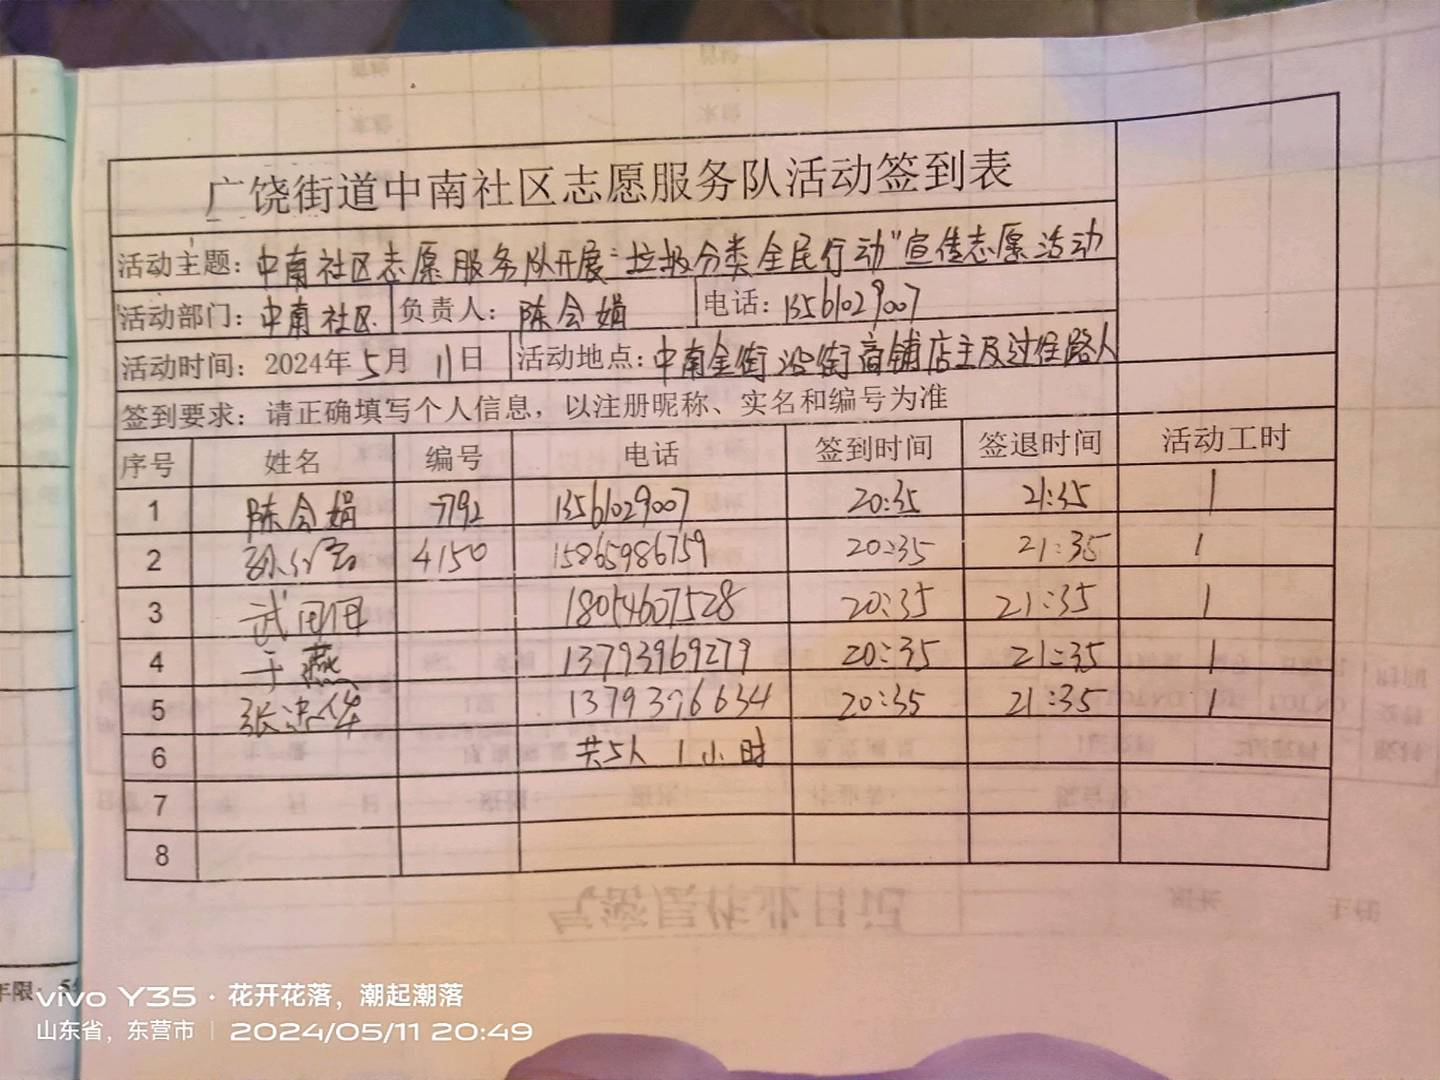 广饶街道中南社区志愿服务队活动签到表
活动主题：中南社区志愿服务队开展"垃圾分类全民行动"宣传志愿活动
活动部门：中南社区 负责人：陈会娟 电话：13561029007
活动时间：2024年5月11日 活动地点：中南金街沿街商铺店主及过往路人
签到要求：请正确填写个人信息，以注册昵称、实名和编号为准
序号 姓名 编号 电话 签到时间 签退时间 活动工时
1 陈会娟 7792 13561029007 20:35 21:35 1
2 4150 15865986759 20:35 21:35 1
3 武 18054607528 20:35 21:35 1
4 于燕 13793969279 20:35 21:35 1
5 张 华 1379376634 20:35 21:35 1
6 共5人 1小时
7
8
气密层作业日记
年限：
vivo Y35 · 花开花落，潮起潮落
山东省，东营市 | 2024/05/11 20:49